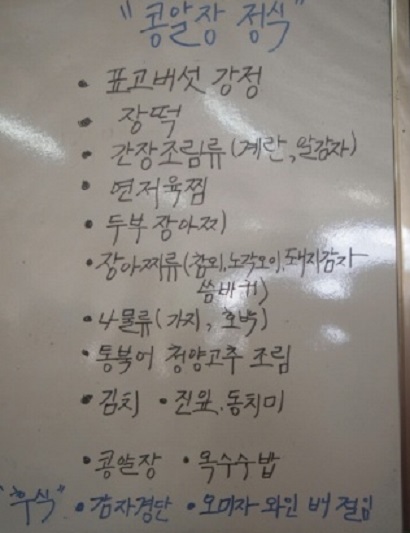 "콩알장 정식"
• 표고버섯 강정
• 장떡
• 간장조림류(계란, 알감자)
• 연저육찜
• 두부장아찌
• 장아찌류(참외, 노각오이, 돼지감자
씀바귀)
• 나물류(가지, 호박)
• 통북어 청양고추 조림
• 김치 • 진잎, 동치미
• 콩알장 • 옥수수밥
"후식" • 감자경단 • 오미자 와인 배 절임